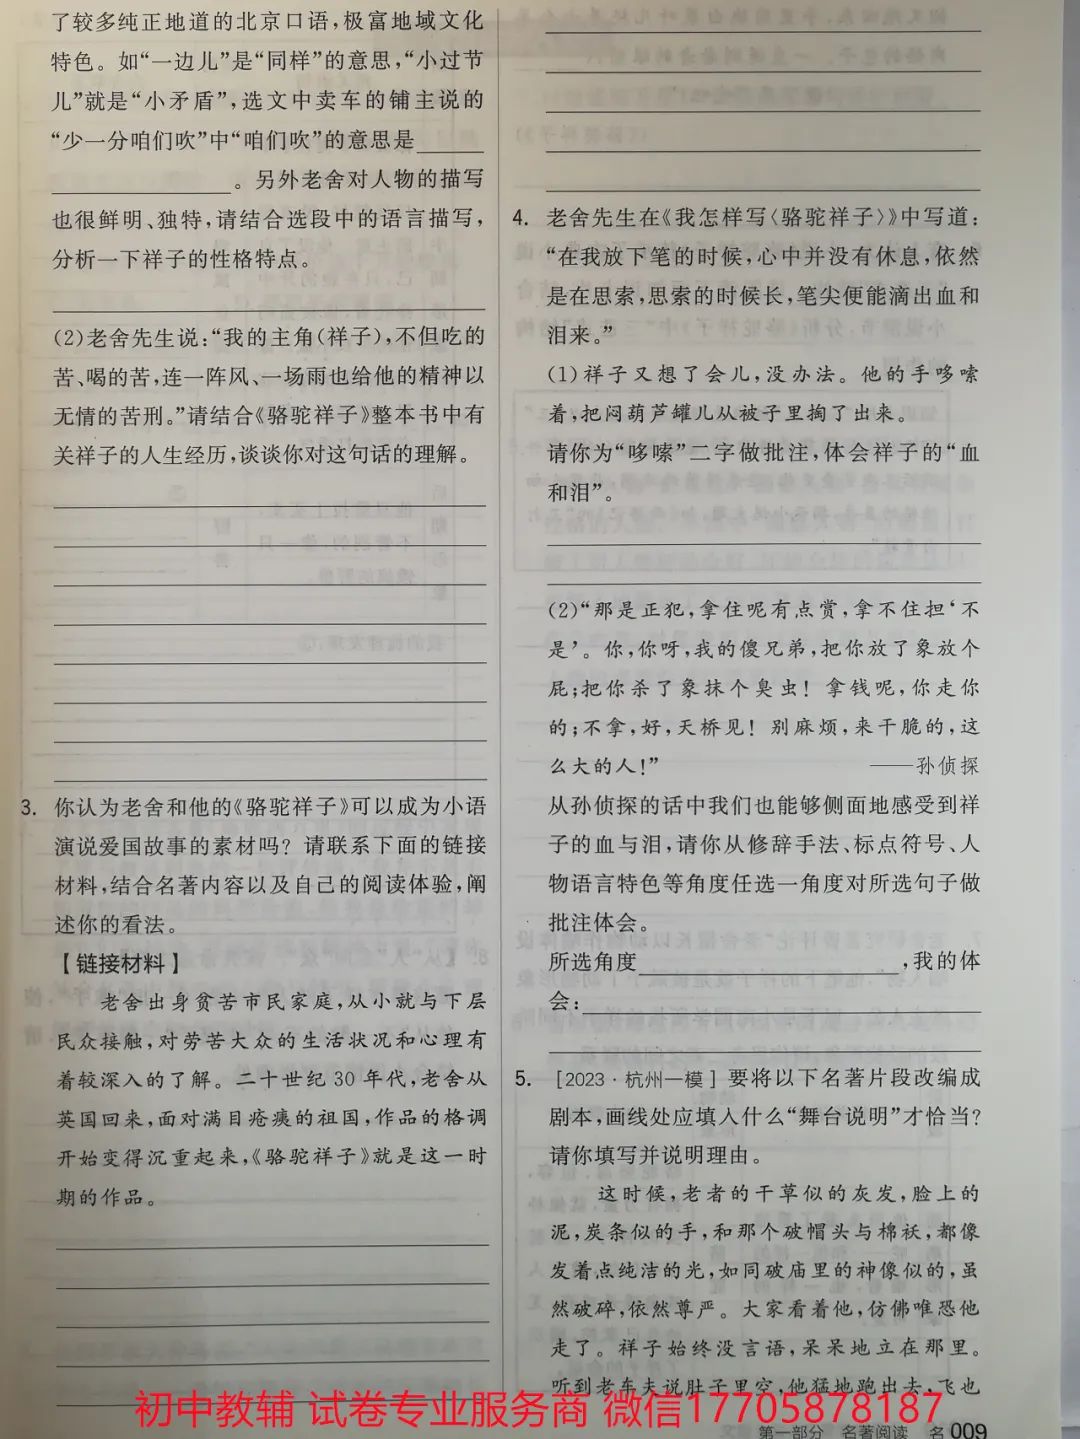 了较多纯正地道的北京口语，极富地域文化
特色。如“一边儿”是“同样”的意思，“小过节
儿”就是“小矛盾”，选文中卖车的铺主说的
“少一分咱们吹”中“咱们吹”的意思是
。另外老舍对人物的描写
也很鲜明、独特，请结合选段中的语言描写，
分析一下祥子的性格特点。
(2)老舍先生说：“我的主角(祥子)，不但吃的
苦、喝的苦，连一阵风、一场雨也给他的精神以
无情的苦刑。”请结合《骆驼祥子》整本书中有
关祥子的人生经历，谈谈你对这句话的理解。
3. 你认为老舍和他的《骆驼祥子》可以成为小语
演说爱国故事的素材吗？请联系下面的链接
材料，结合名著内容以及自己的阅读体验，阐
述你的看法。
【链接材料】
老舍出身贫苦市民家庭，从小就与下层
民众接触，对劳苦大众的生活状况和心理有
着较深入的了解。二十世纪30年代，老舍从
英国回来，面对满目疮痍的祖国，作品的格调
开始变得沉重起来，《骆驼祥子》就是这一时
期的作品。
4. 老舍先生在《我怎样写〈骆驼祥子〉》中写道：
“在我放下笔的时候，心中并没有休息，依然
是在思索，思索的时候长，笔尖便能滴出血和
泪来。”
(1)祥子又想了会儿，没办法。他的手哆嗦
着，把闷葫芦罐儿从被子里掏了出来。
请你为“哆嗦”二字做批注，体会祥子的“血
和泪”。
(2)“那是正犯，拿住呢有点赏，拿不住担‘不
是’。你，你呀，我的傻兄弟，把你放了象放个
屁；把你杀了象抹个臭虫！拿钱呢，你走你
的；不拿，好，天桥见！别麻烦，来干脆的，这
么大的人！”
——孙侦探
从孙侦探的话中我们也能够侧面地感受到祥
子的血与泪，请你从修辞手法、标点符号、人
物语言特色等角度任选一角度对所选句子做
批注体会。
所选角度，我的体
会：
5. [2023·杭州一模]要将以下名著片段改编成
剧本，画线处应填入什么“舞台说明”才恰当？
请你填写并说明理由。
这时候，老者的干草似的灰发，脸上的
泥，炭条似的手，和那个破帽头与棉袄，都像
发着点纯洁的光，如同破庙里的神像似的，虽
然破碎，依然尊严。大家看着他，仿佛唯恐他
走了。祥子始终没言语，呆呆地立在那里。
听到老车夫说肚子里空，他猛地跑出去，飞也
初中教辅 试卷专业服务商 微信17705878187
第一部分 名著阅读 名 009